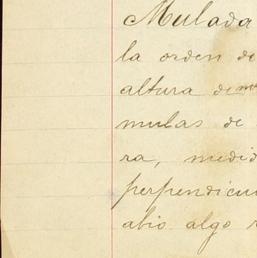 Mulada
la orden de
altura de
mulas de
ra, medid
perpendicu
abio algo